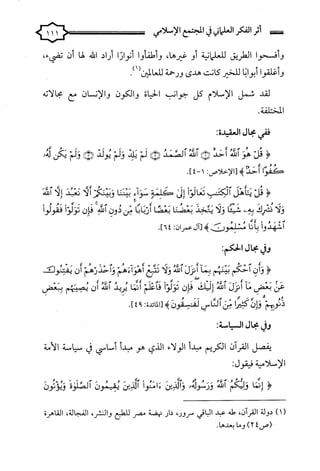 ١١١ أثر الفكر العلماني في المجتمع الإسلامي
وأفسحوا الطريق للعلمانية أو غيرها، وأطفأوا أنوارًا أراد الله لها أن تضيء،
وأغلقوا أبوابًا للخير كانت هدى ورحمة للعالمين(١).
لقد شمل الإسلام كل جوانب الحياة والكون والإنسان مع مجالاته
المختلفة.
ففي مجال العقيدة:
﴿ قُلْ هُوَ اللَّهُ أَحَدٌ ۝ اللَّهُ الصَّمَدُ ۝ لَمْ يَلِدْ وَلَمْ يُولَدْ ۝ وَلَمْ يَكُن لَّهُ
كُفُوًا أَحَدٌ ﴾ [الإخلاص: ١-٤].
﴿ قُلْ يَا أَهْلَ الْكِتَابِ تَعَالَوْا إِلَىٰ كَلِمَةٍ سَوَاءٍ بَيْنَنَا وَبَيْنَكُمْ أَلَّا نَعْبُدَ إِلَّا اللَّهَ
وَلَا نُشْرِكَ بِهِ شَيْئًا وَلَا يَتَّخِذَ بَعْضُنَا بَعْضًا أَرْبَابًا مِّن دُونِ اللَّهِ فَإِن تَوَلَّوْا فَقُولُوا
اشْهَدُوا بِأَنَّا مُسْلِمُونَ ﴾ [آل عمران: ٦٤].
وفي مجال الحكم:
﴿ وَأَنِ احْكُم بَيْنَهُم بِمَا أَنزَلَ اللَّهُ وَلَا تَتَّبِعْ أَهْوَاءَهُمْ وَاحْذَرْهُمْ أَن يَفْتِنُوكَ
عَن بَعْضِ مَا أَنزَلَ اللَّهُ إِلَيْكَ فَإِن تَوَلَّوْا فَاعْلَمْ أَنَّمَا يُرِيدُ اللَّهُ أَن يُصِيبَهُم بِبَعْضِ
ذُنُوبِهِمْ وَإِنَّ كَثِيرًا مِّنَ النَّاسِ لَفَاسِقُونَ ﴾ [المائدة: ٤٩].
وفي مجال السياسة:
يفصل القرآن الكريم مبدأ الولاء الذي هو مبدأ أساسي في سياسة الأمة
الإسلامية فيقول:
﴿ إِنَّمَا وَلِيُّكُمُ اللَّهُ وَرَسُولُهُ وَالَّذِينَ آمَنُوا الَّذِينَ يُقِيمُونَ الصَّلَاةَ وَيُؤْتُونَ
(١) دولة القرآن، طه عبد الباقي سرور، دار نهضة مصر للطبع والنشر، الفجالة، القاهرة
(ص٢٤) وما بعدها.